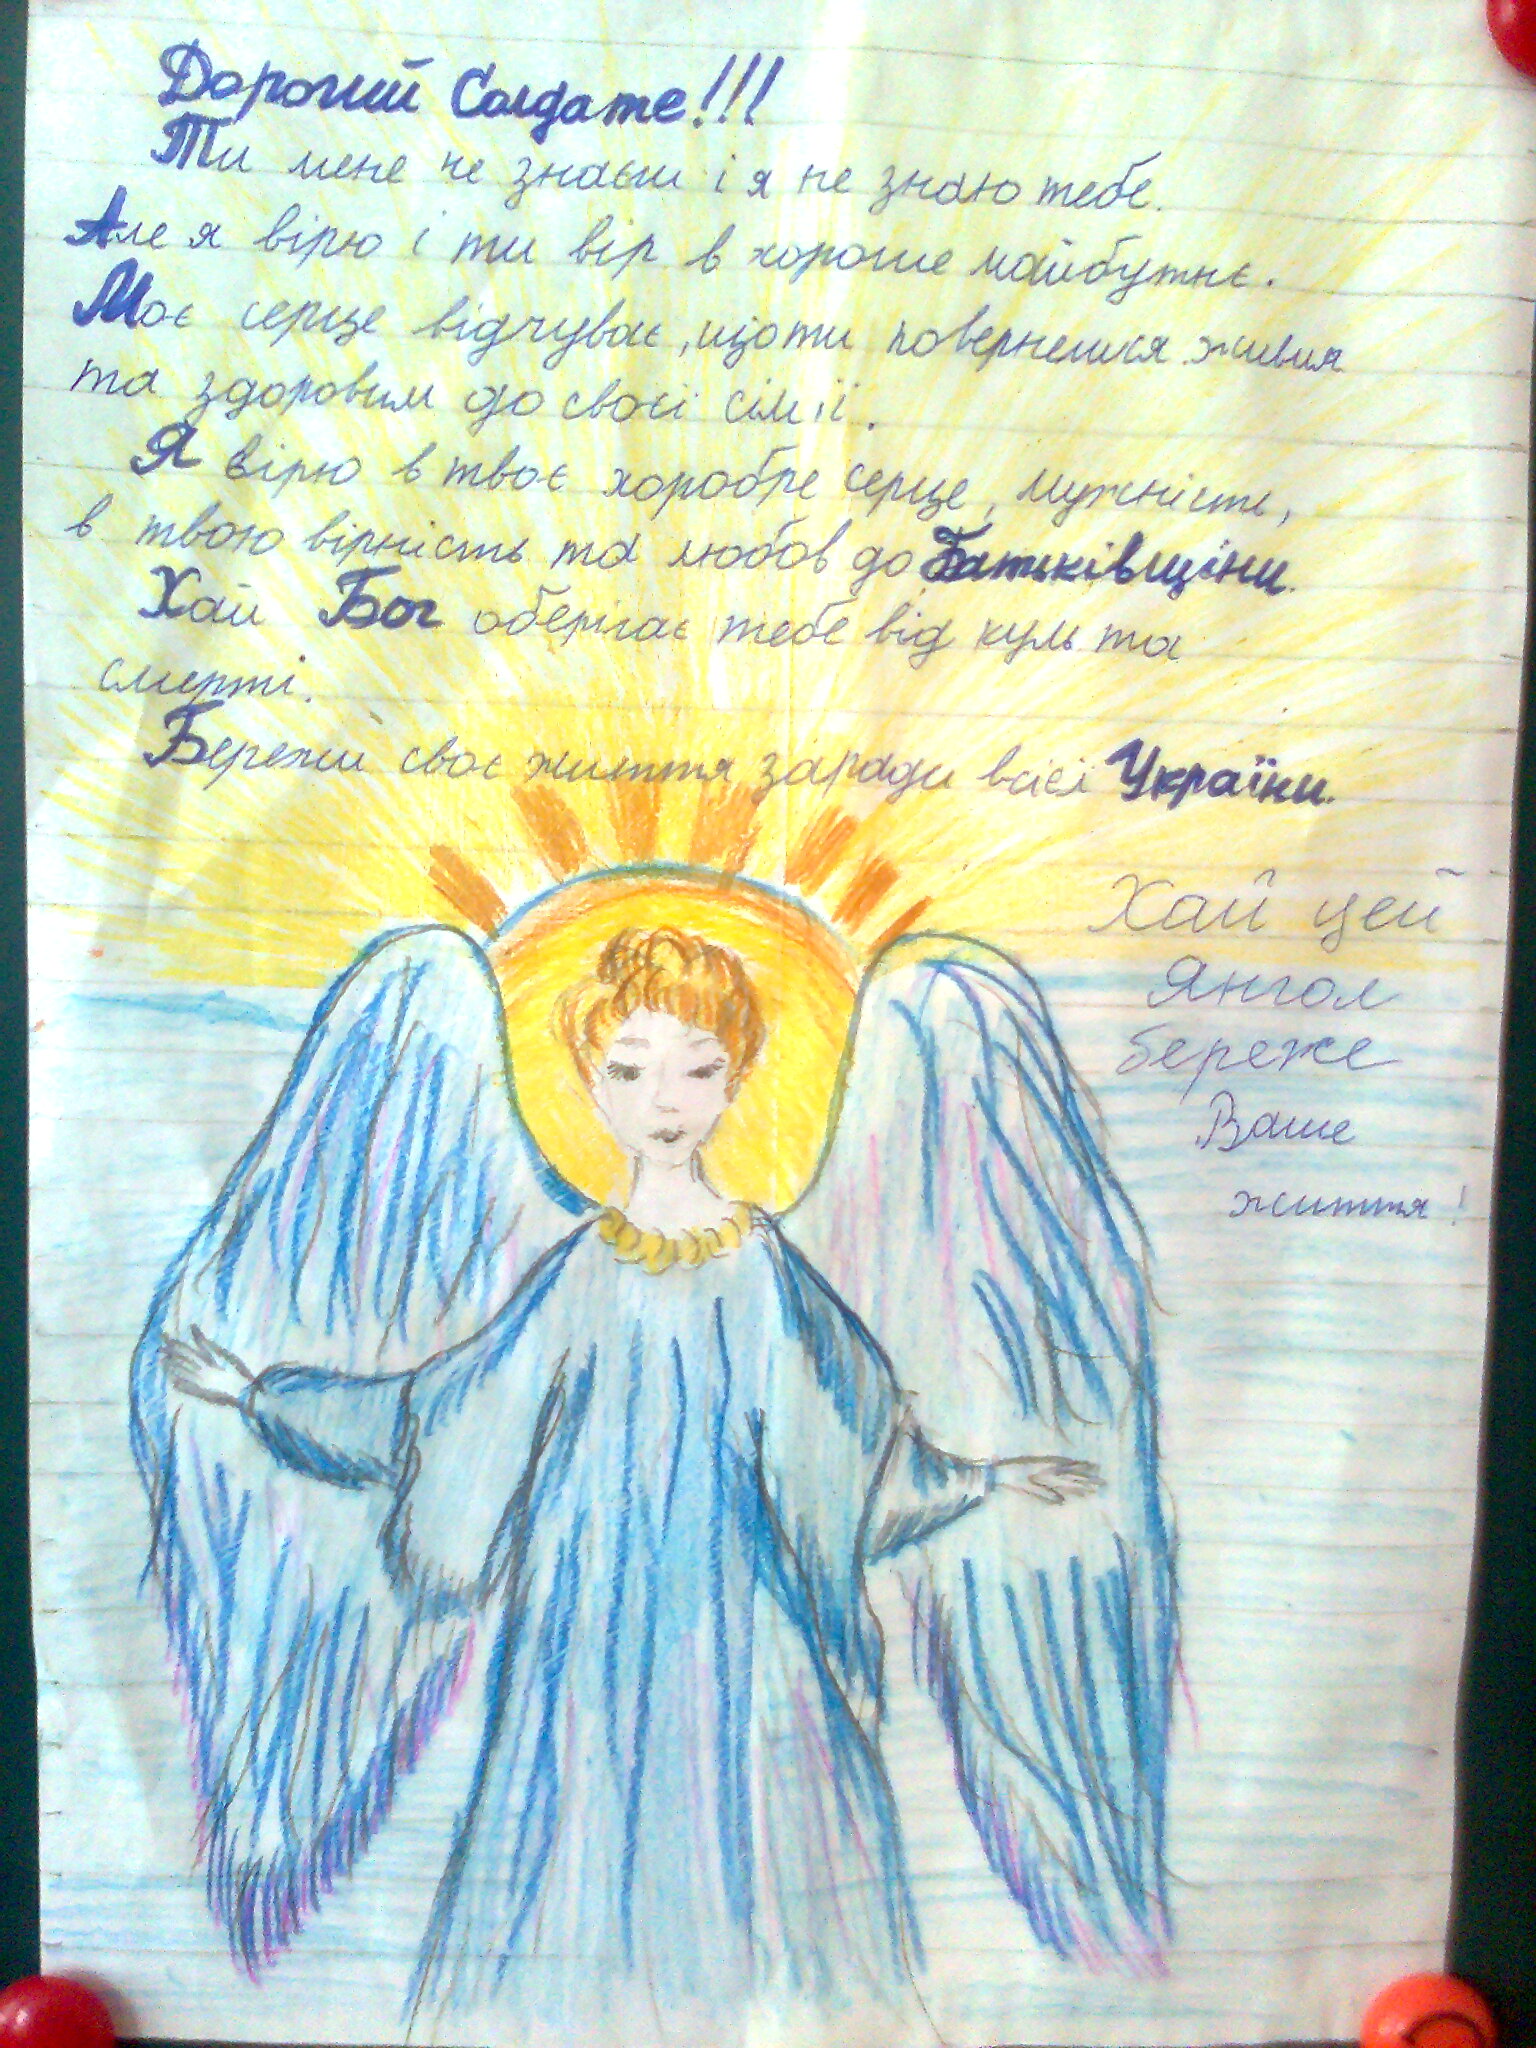 Дорогий Солдате!!!
Ти мене не знаєш і я не знаю тебе.
Але я вірю і ти вір в хороше майбутнє.
Моє серце відчуває, що ти повернешся живим
та здоровим до своєї сім'ї.
Я вірю в твоє хоробре серце, мужність,
в твою вірність та любов до Батьківщини.
Хай Бог оберігає тебе від куль та
смерті.
Бережи своє життя заради всієї України.
Хай цей
Янгол
береже
Ваше
життя!